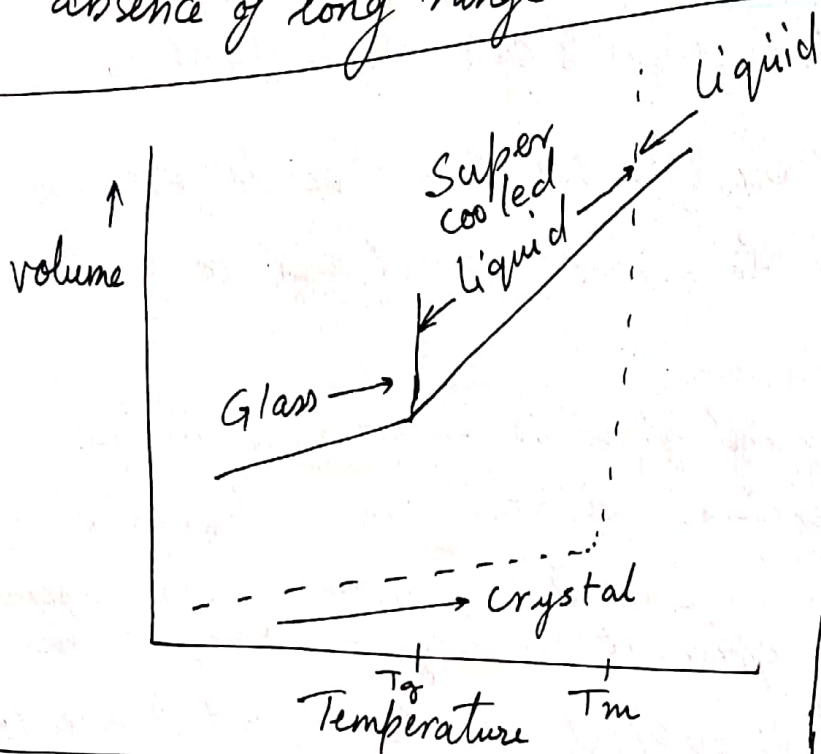 absence of long range
Liquid
Super
cooled
liquid
volume
Glass
crystal
Tg
Tm
Temperature